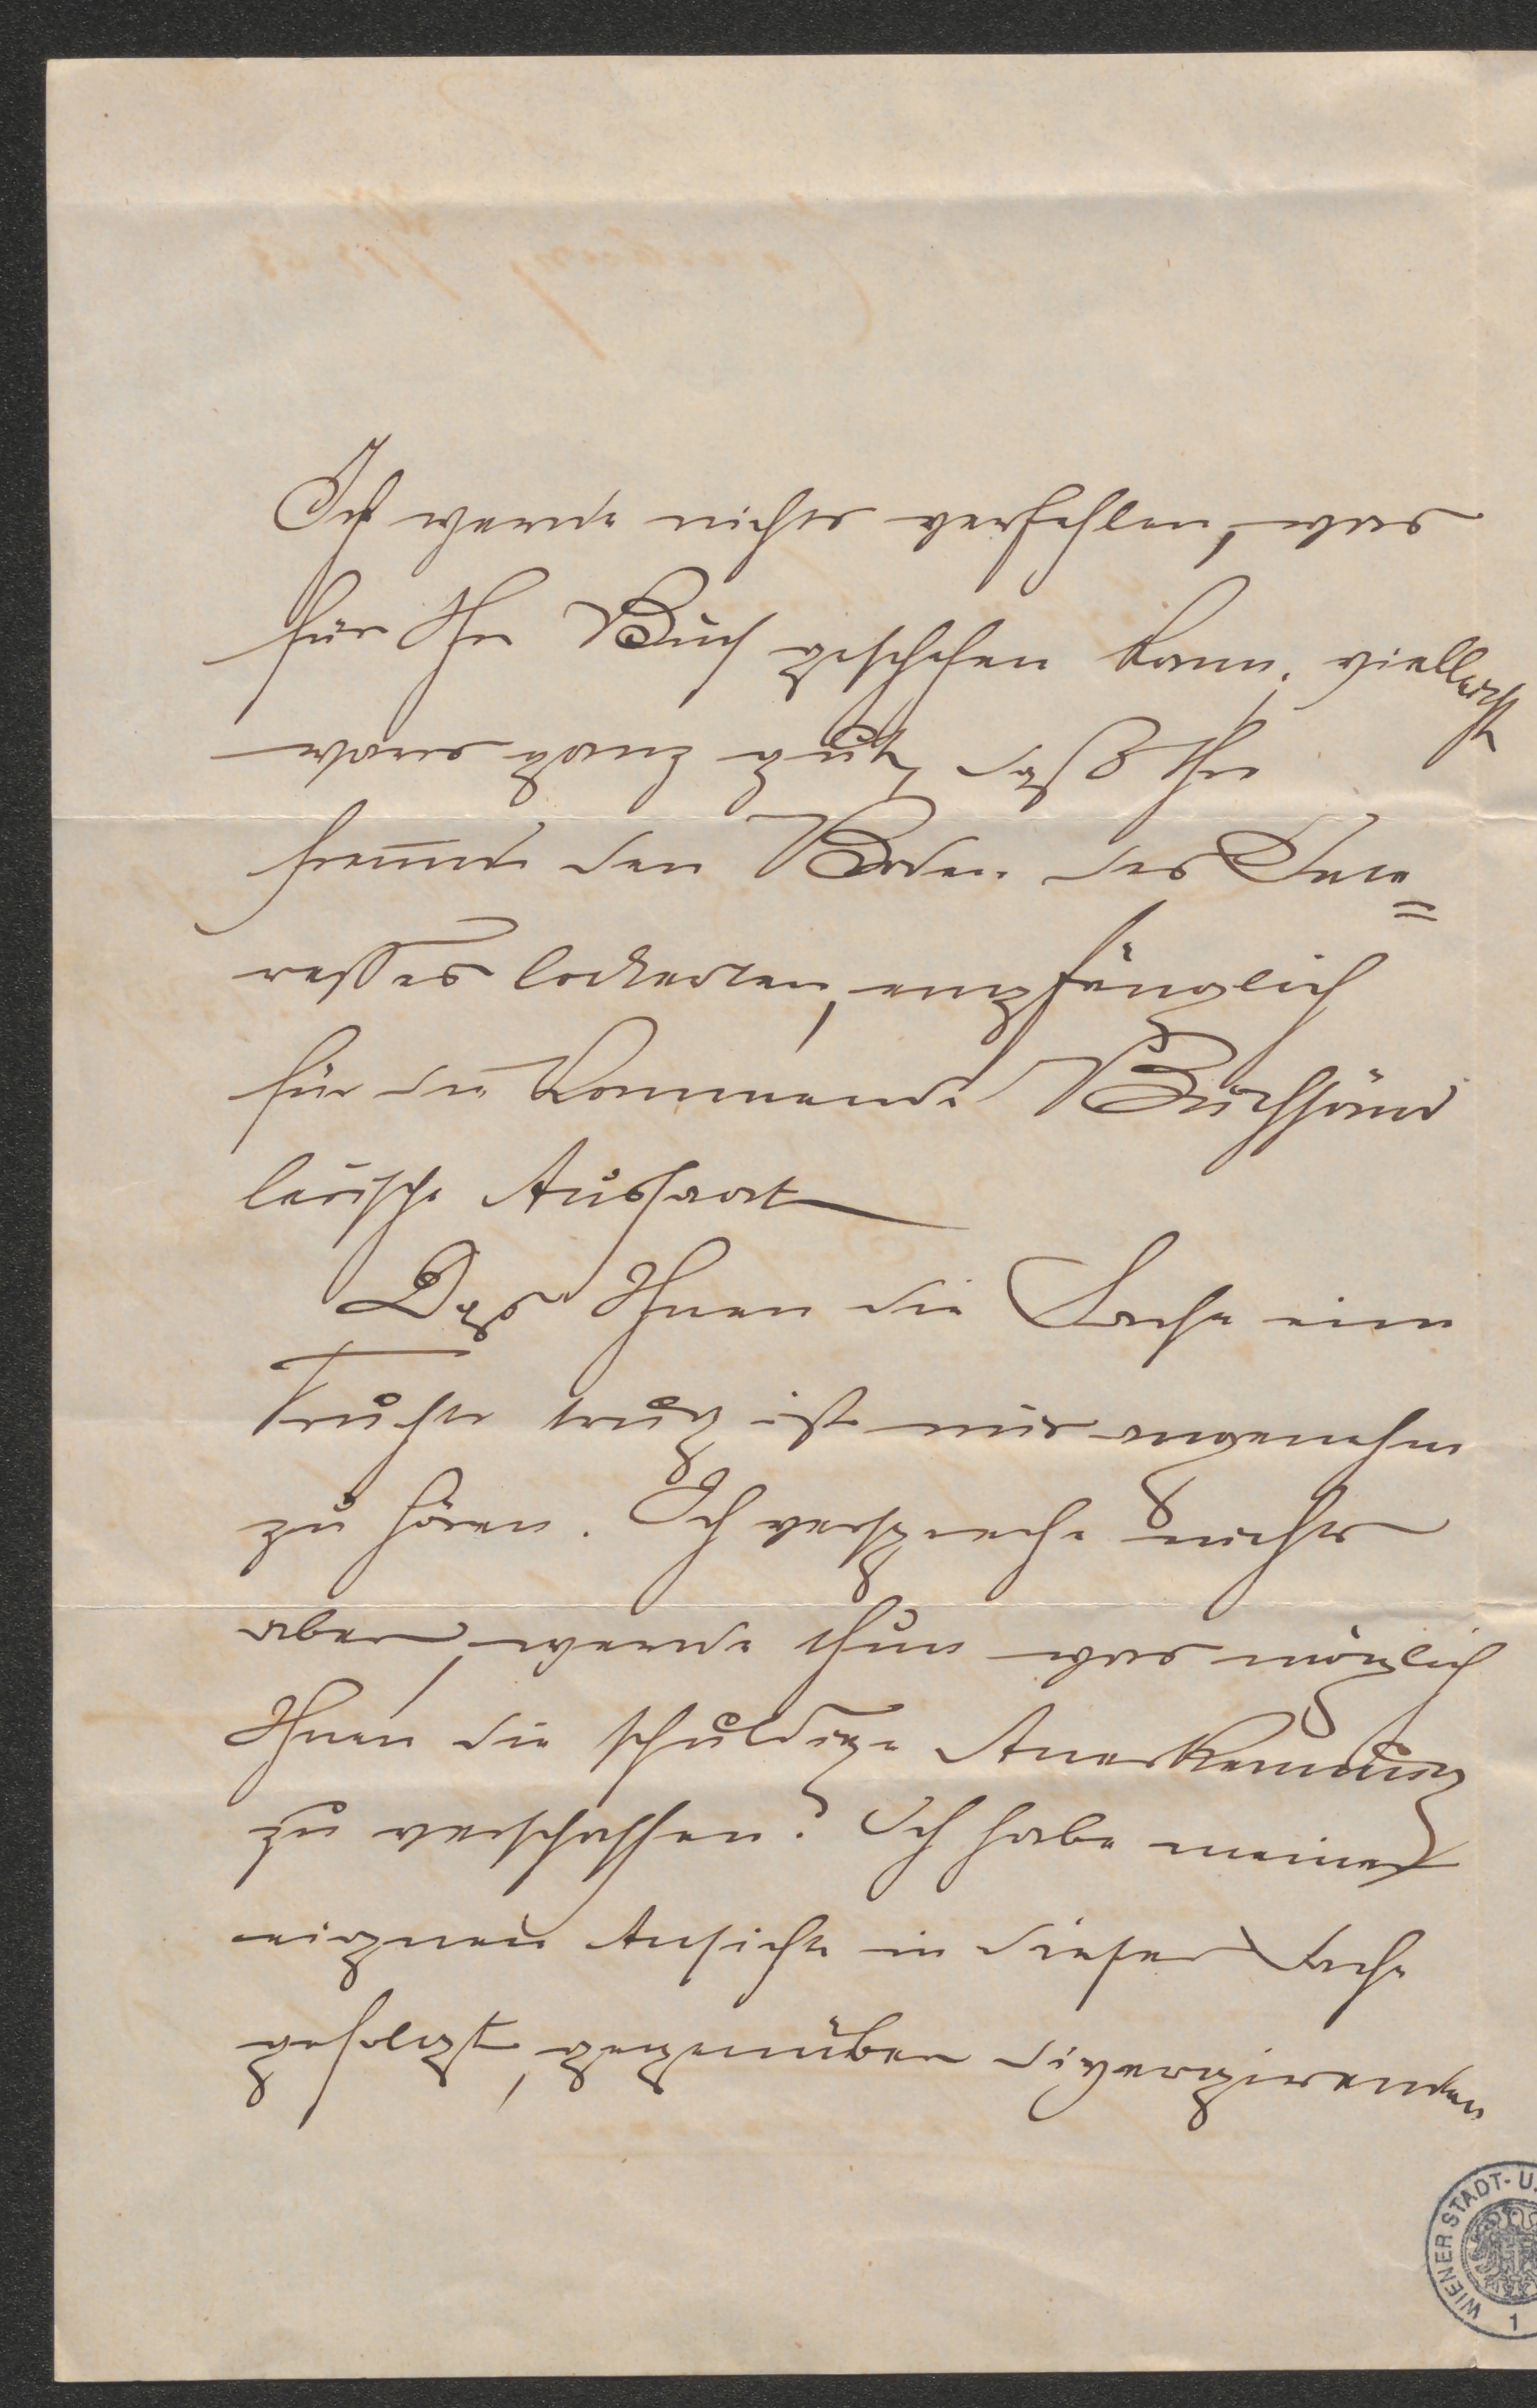 Ich werde nichts verfehlen, was
für Ihr Buch geschehen kann, vielleicht
wars ganz gut, daß Ihre
Freunde den Boden des Inte=
resses lockerten, empfänglich
für die kommende Buchhänd
lerische Aussaat
Daß Ihnen die Sache eine
Fruchte trug ist mir angenehm
zu hören. Ich verspreche nichts
aber, werde thun was möglich
Ihnen die schuldige Anerkennung
zu verschaffen. Ich habe meiner
eignen Ansicht in dieser Sache
gefolgt, gegenüber divergirenden
WIENER STADT- U.
1